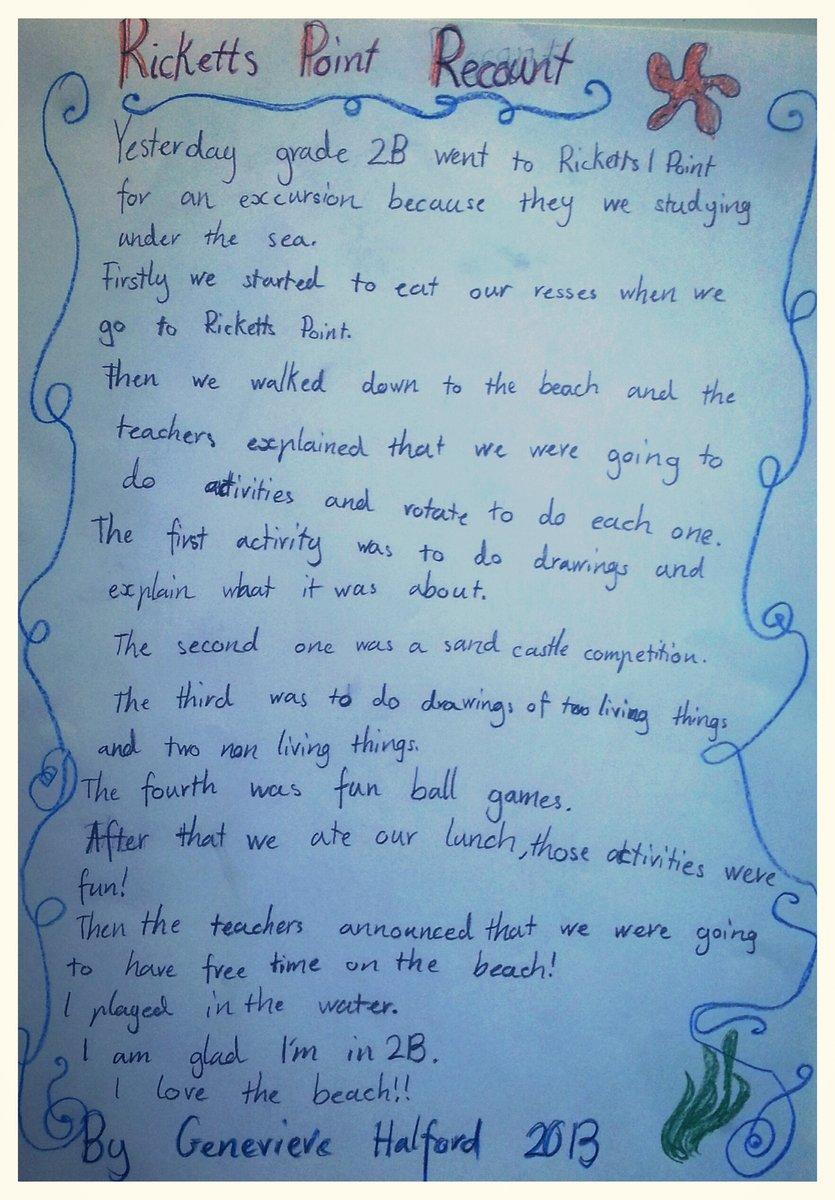 Ricketts Point Recount
Yesterday grade 2B went to Ricketts Point
for an excursion because they we studying
under the sea.
Firstly we started to eat our resses when we
go to Ricketts Point.
Then we walked down to the beach and the
teachers explained that we were going to
do activities and rotate to do each one.
The first activity was to do drawings and
explain what it was about.
The second one was a sand castle competition.
The third was to do drawings of two living things
and two non living things.
The fourth was fun ball games.
After that we ate our lunch, those activities were
fun!
Then the teachers announced that we were going
to have free time on the beach!
I played in the water.
I am glad I'm in 2B.
I love the beach!!
By Genevieve Halford 2013